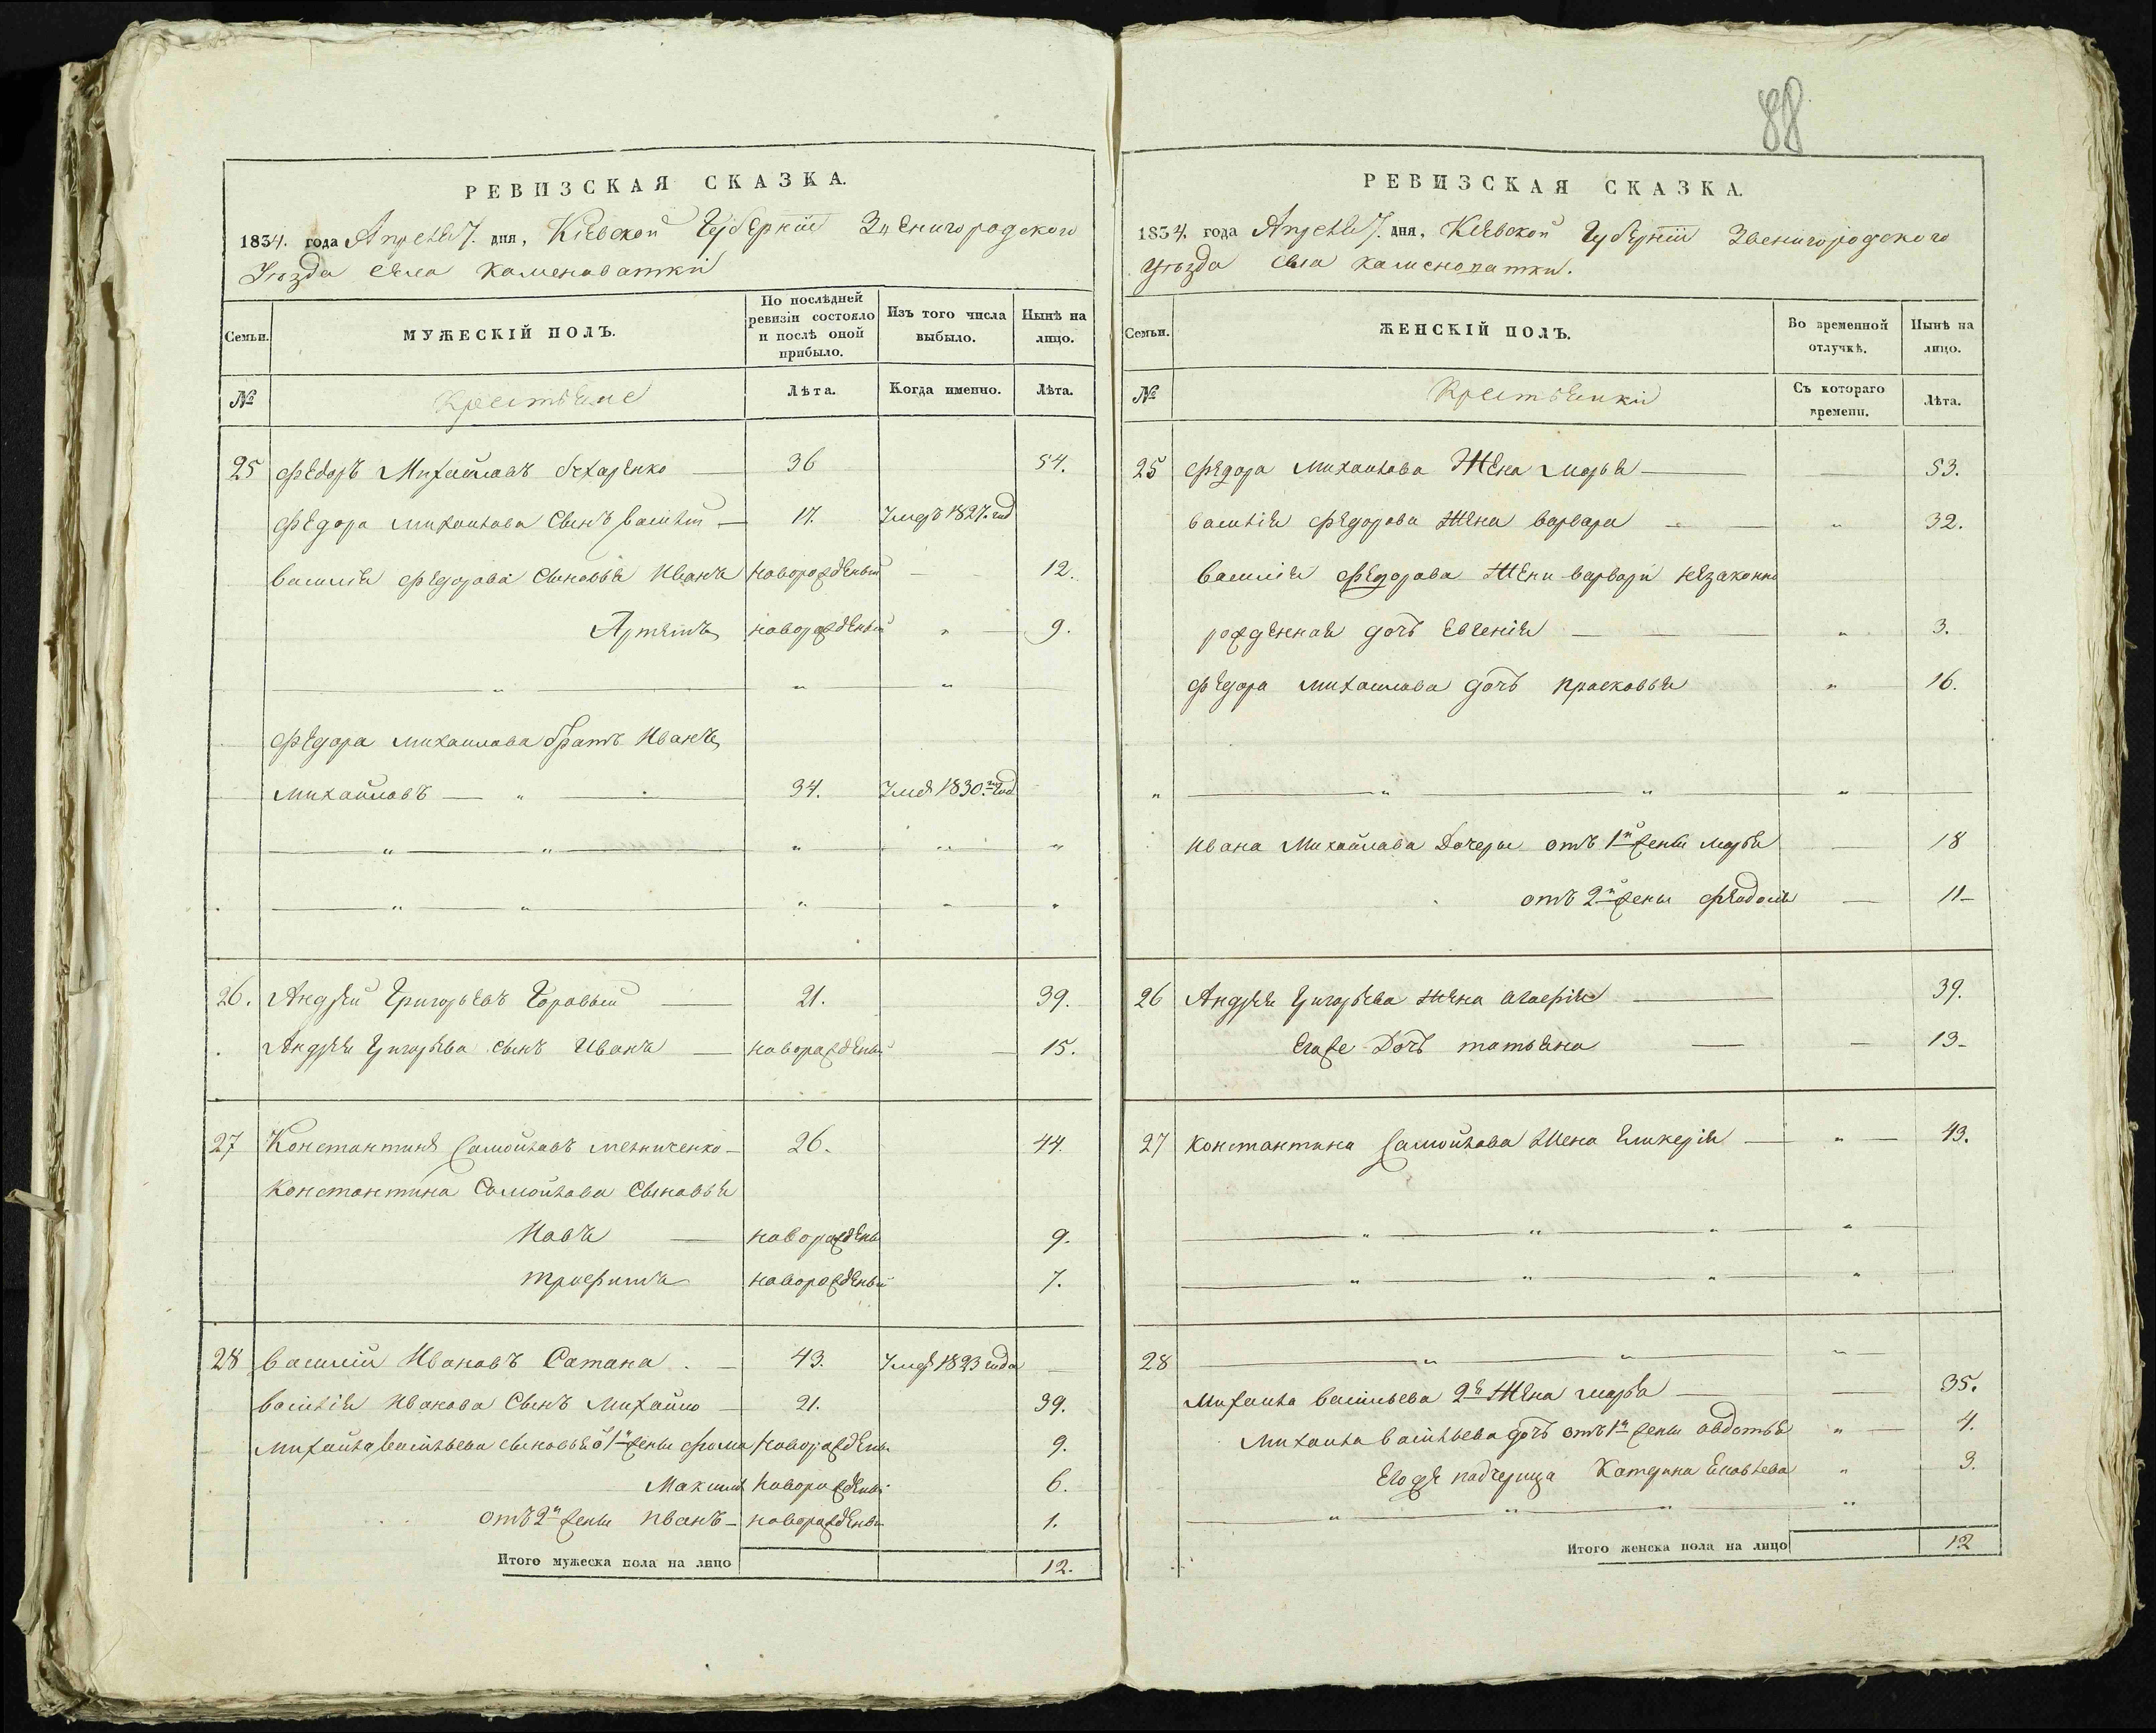 88
РЕВИЗСКАЯ СКАЗКА.
1834. года Апреля 7. дня, Кіевской Губерніи Звенигородского
Уезда села Каменоватки
Семьи. МУЖЕСКІЙ ПОЛЪ. По послѣдней ревизіи состояло и послѣ оной прибыло. Изъ того числа выбыло. Нынѣ на лицо.
№ Крестьяне Лѣта. Когда именно. Лѣта.
25 Федоръ Михайловъ Бехаренко — 36 54.
Федора Михайлова Сынъ Василій — 17. Умеръ 1827. год
Василія Федорова Сыновья Иванъ новорожденый — 12.
Артемъ новорожденый " — 9.
Федора Михайлова братъ Иванъ
Михайловъ — " 34. 1830. год
26. Андрей Григорьевъ Коровый — 21. 39.
Андрея Григорьева сынъ Иванъ — новорожденый — 15.
27 Константинъ Самойловъ Мельниченко — 26. 44.
Константина Самойлова Сыновья
Иовъ — новорожденый 9.
Трофимъ новорожденый 7.
28 Василій Ивановъ Сатана — 43. 1823 года —
Василія Иванова Сынъ Михайло — 21. 39.
Михайла Васильева сыновья о 1й жены Фома новорожденый 9.
Максимъ новорожденый 6.
отъ 2й жены Иванъ — новорожденый 1.
Итого мужеска пола на лицо 12.
РЕВИЗСКАЯ СКАЗКА.
1834. года Апреля 7. дня, Кіевской Губерніи Звенигородского
уезда села Каменоватки.
Семьи. ЖЕНСКІЙ ПОЛЪ. Во временной отлучкѣ. Нынѣ на лицо.
№ Крестьянки Съ котораго времени. Лѣта.
25 Федора Михайлова Жена Марья — — 53.
Василія Федорова Жена Варвара — " 32.
Василія Федорова Жены Варвари незаконно
рожденная дочь Евгенія — " 3.
Федора Михайлова дочь Прасковья " 16.
Ивана Михайлова Дочери отъ 1й жены Марья — 18
отъ 2й жены Феодосія — 11 —
26 Андрея Григорьева жена Агафія — 39.
Егоже Дочь Татьяна — — 13 —
27 Константина Самойлова Жена Гликерія — " — 43.
28
Михайла Васильева 2я Жена Марья — — 35.
Михайла Васильева дочь отъ 1й жены Авдотья " — 4.
Егоже падчерица Катерина " 3.
Итого женска пола на лицо 12